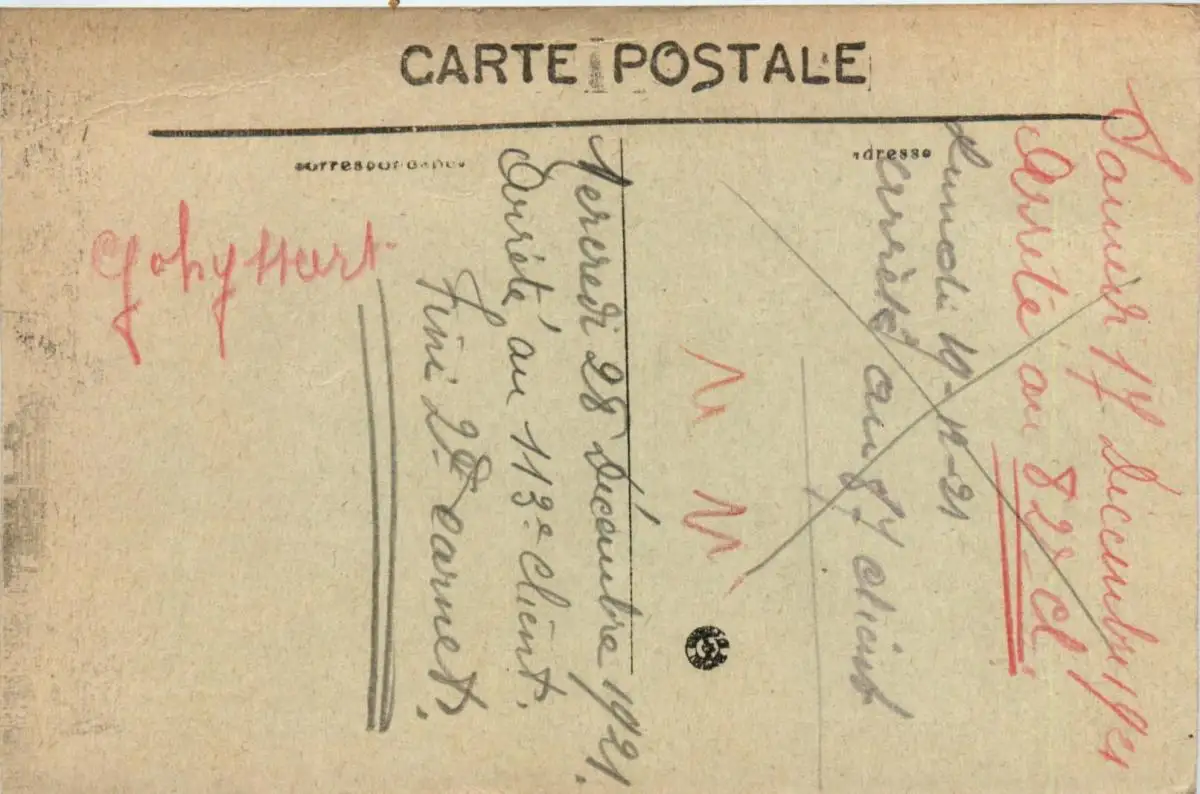 CARTE POSTALE
Correspondance
Adresse
Samedi 17 Decembre 1921
Arrêté au 82e Cl
Lundi 19-12-21
arrêté au 87 client
Mercredi 28 Décembre 1921.
Arrêté au 113e client.
Fini 2e carnet.